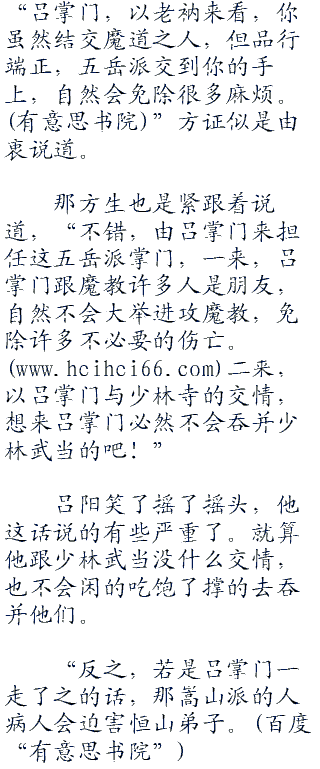 “吕掌门，以老衲来看，你
虽然结交魔道之人，但品行
端正，五岳派交到你的手
上，自然会免除很多麻烦。
(有意思书院)”方证似是由
衷说道。
那方生也是紧跟着说
道，“不错，由吕掌门来担
任这五岳派掌门，一来，吕
掌门跟魔教许多人是朋友，
自然不会大举进攻魔教，免
除许多不必要的伤亡。
(www.hcihci66.com)二来，
以吕掌门与少林寺的交情，
想来吕掌门必然不会吞并少
林武当的吧！”
吕阳笑了摇了摇头，他
这话说的有些严重了。就算
他跟少林武当没什么交情，
也不会闲的吃饱了撑的去吞
并他们。
“反之，若是吕掌门一
走了之的话，那嵩山派的人
病人会迫害恒山弟子。(百度
“有意思书院”)